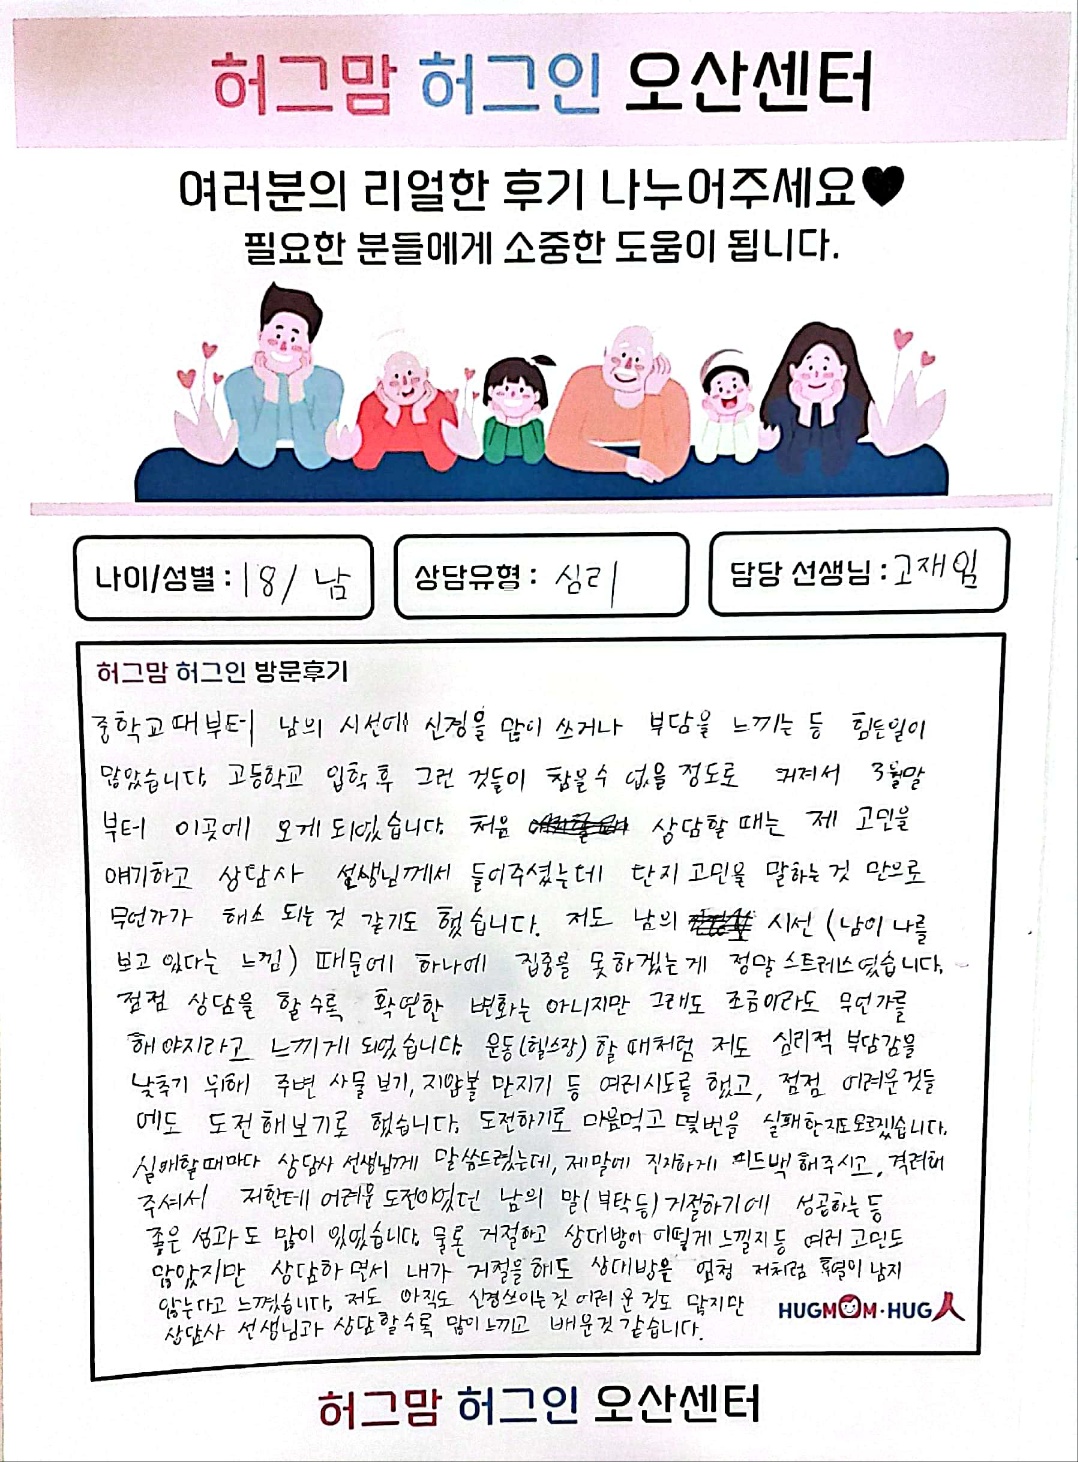 허그맘 허그인 오산센터
여러분의 리얼한 후기 나누어주세요♥
필요한 분들에게 소중한 도움이 됩니다.
나이/성별 : 18/ 남
상담유형 : 심리
담당 선생님 : 고재일
허그맘 허그인 방문후기
중학교때부터 남의 시선에 신경을 많이 쓰거나 부담을 느끼는 등 힘든일이
많았습니다. 고등학교 입학 후 그런 것들이 참을 수 없을 정도로 커져서 3월말
부터 이곳에 오게 되었습니다. 처음 상담할 때는 제 고민을
얘기하고 상담사 선생님께서 들어주셨는데 단지 고민을 말하는 것 만으로
무언가가 해소 되는 것 같기도 했습니다. 저도 남의 시선 (남이 나를
보고 있다는 느낌) 때문에 하나에 집중을 못하겠는게 정말 스트레스였습니다.
점점 상담을 할수록 확연한 변화는 아니지만 그래도 조금이라도 무언가를
해야지라고 느끼게 되었습니다. 운동(헬스장) 할 때처럼 저도 심리적 부담감을
낮추기 위해 주변 사물 보기, 지압볼 만지기 등 여러시도를 했고, 점점 어려운것들
에도 도전해보기로 했습니다. 도전하기로 마음먹고 몇번을 실패한지도모르겠습니다.
실패할때마다 상담사 선생님께 말씀드렸는데, 제말에 진지하게 피드백 해주시고, 격려해
주셔서 저한테 어려운 도전이었던 남의 말(부탁 등) 거절하기에 성공하는 등
좋은 성과도 많이 있었습니다. 물론 거절하고 상대방이 어떻게 느낄지 등 여러 고민도
많았지만 상담하면서 내가 거절을 해도 상대방은 엄청 저처럼 기억이 남지
않는다고 느꼈습니다. 저도 아직도 신경쓰이는것 어려운 것도 많지만
상담사 선생님과 상담할수록 많이 느끼고 배운것 같습니다.
HUGMOM·HUG人
허그맘 허그인 오산센터